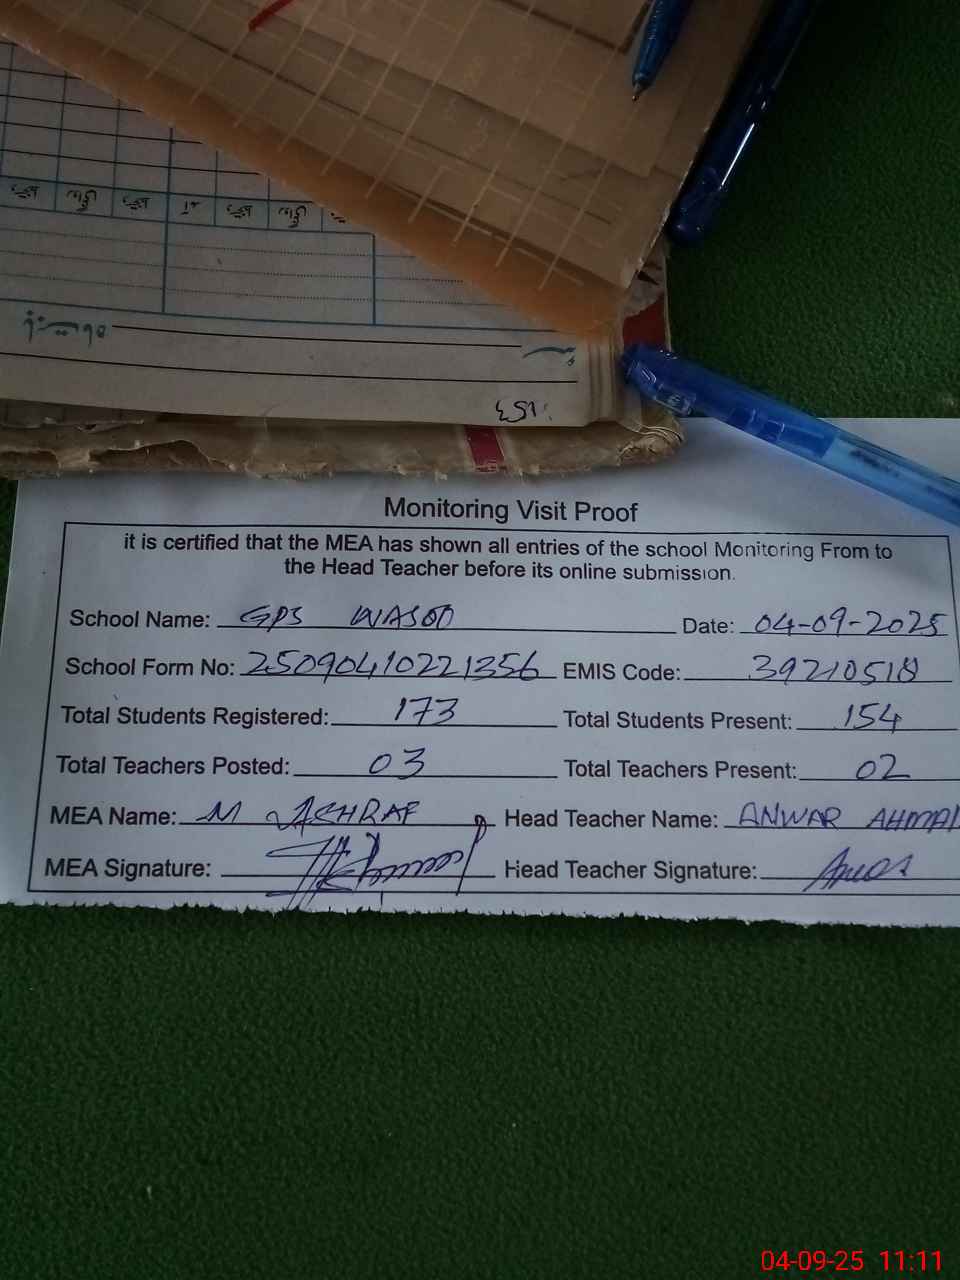 Monitoring Visit Proof
it is certified that the MEA has shown all entries of the school Monitoring From to
the Head Teacher before its online submission.
School Name: GPS WASOO Date: 04-09-2025
School Form No: 25090410221356 EMIS Code: 39210518
Total Students Registered: 173 Total Students Present: 154
Total Teachers Posted: 03 Total Teachers Present: 02
MEA Name: M ASHRAF Head Teacher Name: ANWAR AHMA
MEA Signature: Head Teacher Signature:
04-09-25 11:11